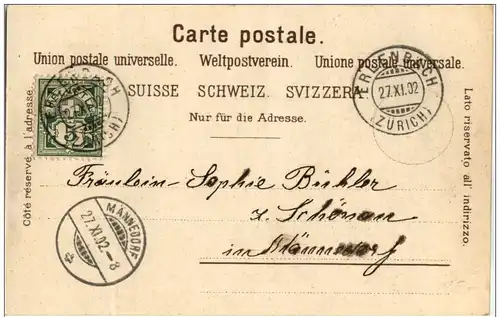 Carte postale.
Union postale universelle. Weltpostverein. Unione postale universale.
SUISSE SCHWEIZ. SVIZZERA
Nur für die Adresse.
Côté réservé à l'adresse.
Lato riservato all' indirizzo.
ERLENBACH
27.XI.02
(ZÜRICH)
Fräulein Sophie Bühler
z. Schönau
in Männedorf
MÄNNEDORF
27.XI.02-8